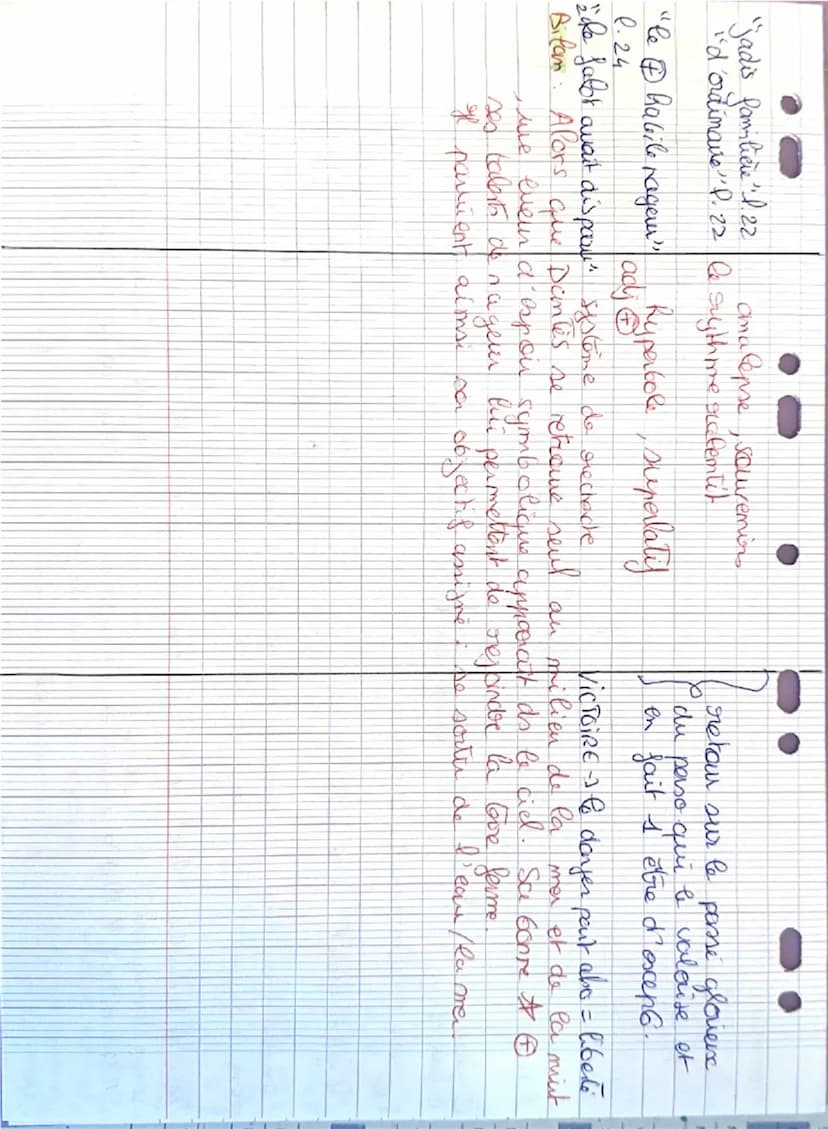 "jadis familière" l.22
"d'ordinaire" l.22
analepse, souvenirs
le rythme ralentit
retour sur le passé glorieux
du perso qui le valorise et
en fait 1 être d'except°.
"le ⊕ habile nageur"
l.24
hyperbole, superlatif
adj ⊕
"Le sabot avait disparu"
système de recherche
VICTOIRE → le danger peut abs = liberté
Bilan : Alors que Dantès se retrouve seul au milieu de la mer et de la nuit
, une lueur d'espoir symbolique apparaît ds le ciel. Sa bonne ☆ ⊕
ses talents de nageur lui permettent de rejoindre la terre ferme.
Il parvient ainsi son objectif assigné : se sortir de l'eau / la mer.